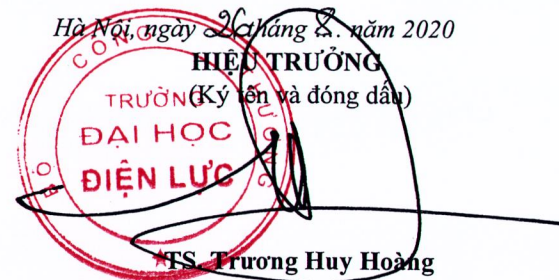 Hà Nội, ngày 26 tháng 8. năm 2020
HIỆU TRƯỞNG
(Ký tên và đóng dấu)
BỘ CÔNG THƯƠNG
TRƯỜNG
ĐẠI HỌC
ĐIỆN LỰC
TS. Trương Huy Hoàng